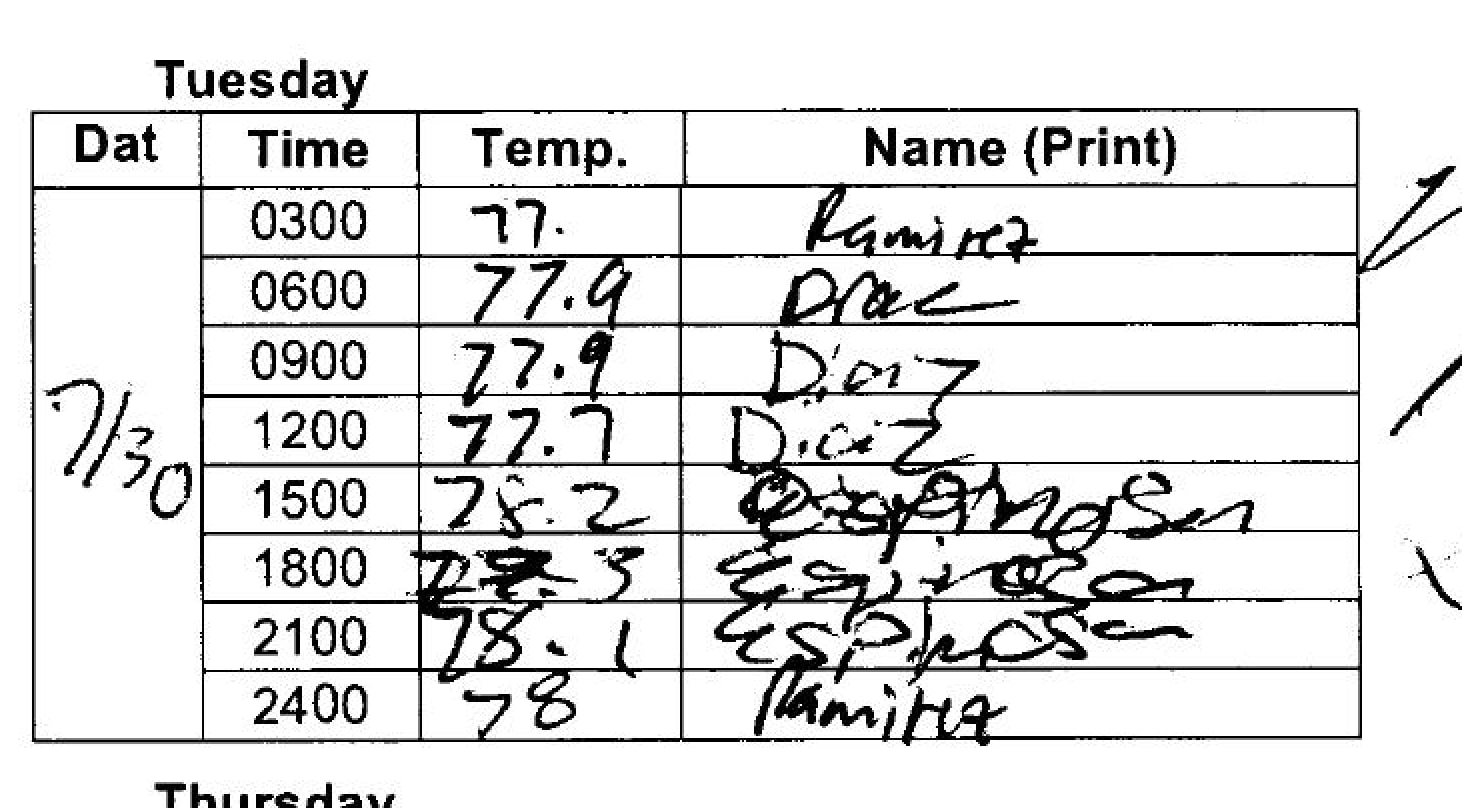 Tuesday
Dat Time Temp. Name (Print)
7/30
0300 77. Ramirez
0600 77.9
0900 77.9 Diaz
1200 77.7 Diaz
1500 78.2 Espinosa
1800 Espinosa
2100 78.1 Espinosa
2400 78 Ramirez
Thursday